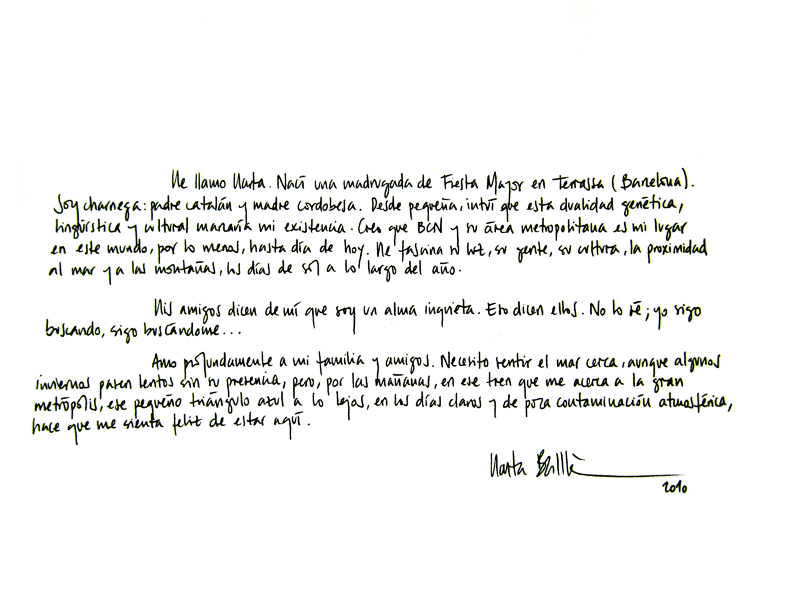 Me llamo Marta. Nací una madrugada de Fiesta Mayor en Terrassa (Barcelona).
Soy charnega: padre catalán y madre cordobesa. Desde pequeña, intuí que esta dualidad genética,
lingüística y cultural marcaría mi existencia. Creo que BCN y su área metropolitana es mi lugar
en este mundo, por lo menos, hasta día de hoy. Me fascina su luz, su gente, su cultura, la proximidad
al mar y a las montañas, los días de sol a lo largo del año.
Mis amigos dicen de mí que soy un alma inquieta. Eso dicen ellos. No lo sé; yo sigo
buscando, sigo buscándome...
Amo profundamente a mi familia y amigos. Necesito sentir el mar cerca, aunque algunos
inviernos pasen lentos sin tu presencia, pero, por las mañanas, en ese tren que me acerca a la gran
metrópolis, ese pequeño triángulo azul a lo lejos, en los días claros y de poca contaminación atmosférica,
hace que me sienta feliz de estar aquí.
Marta
2010